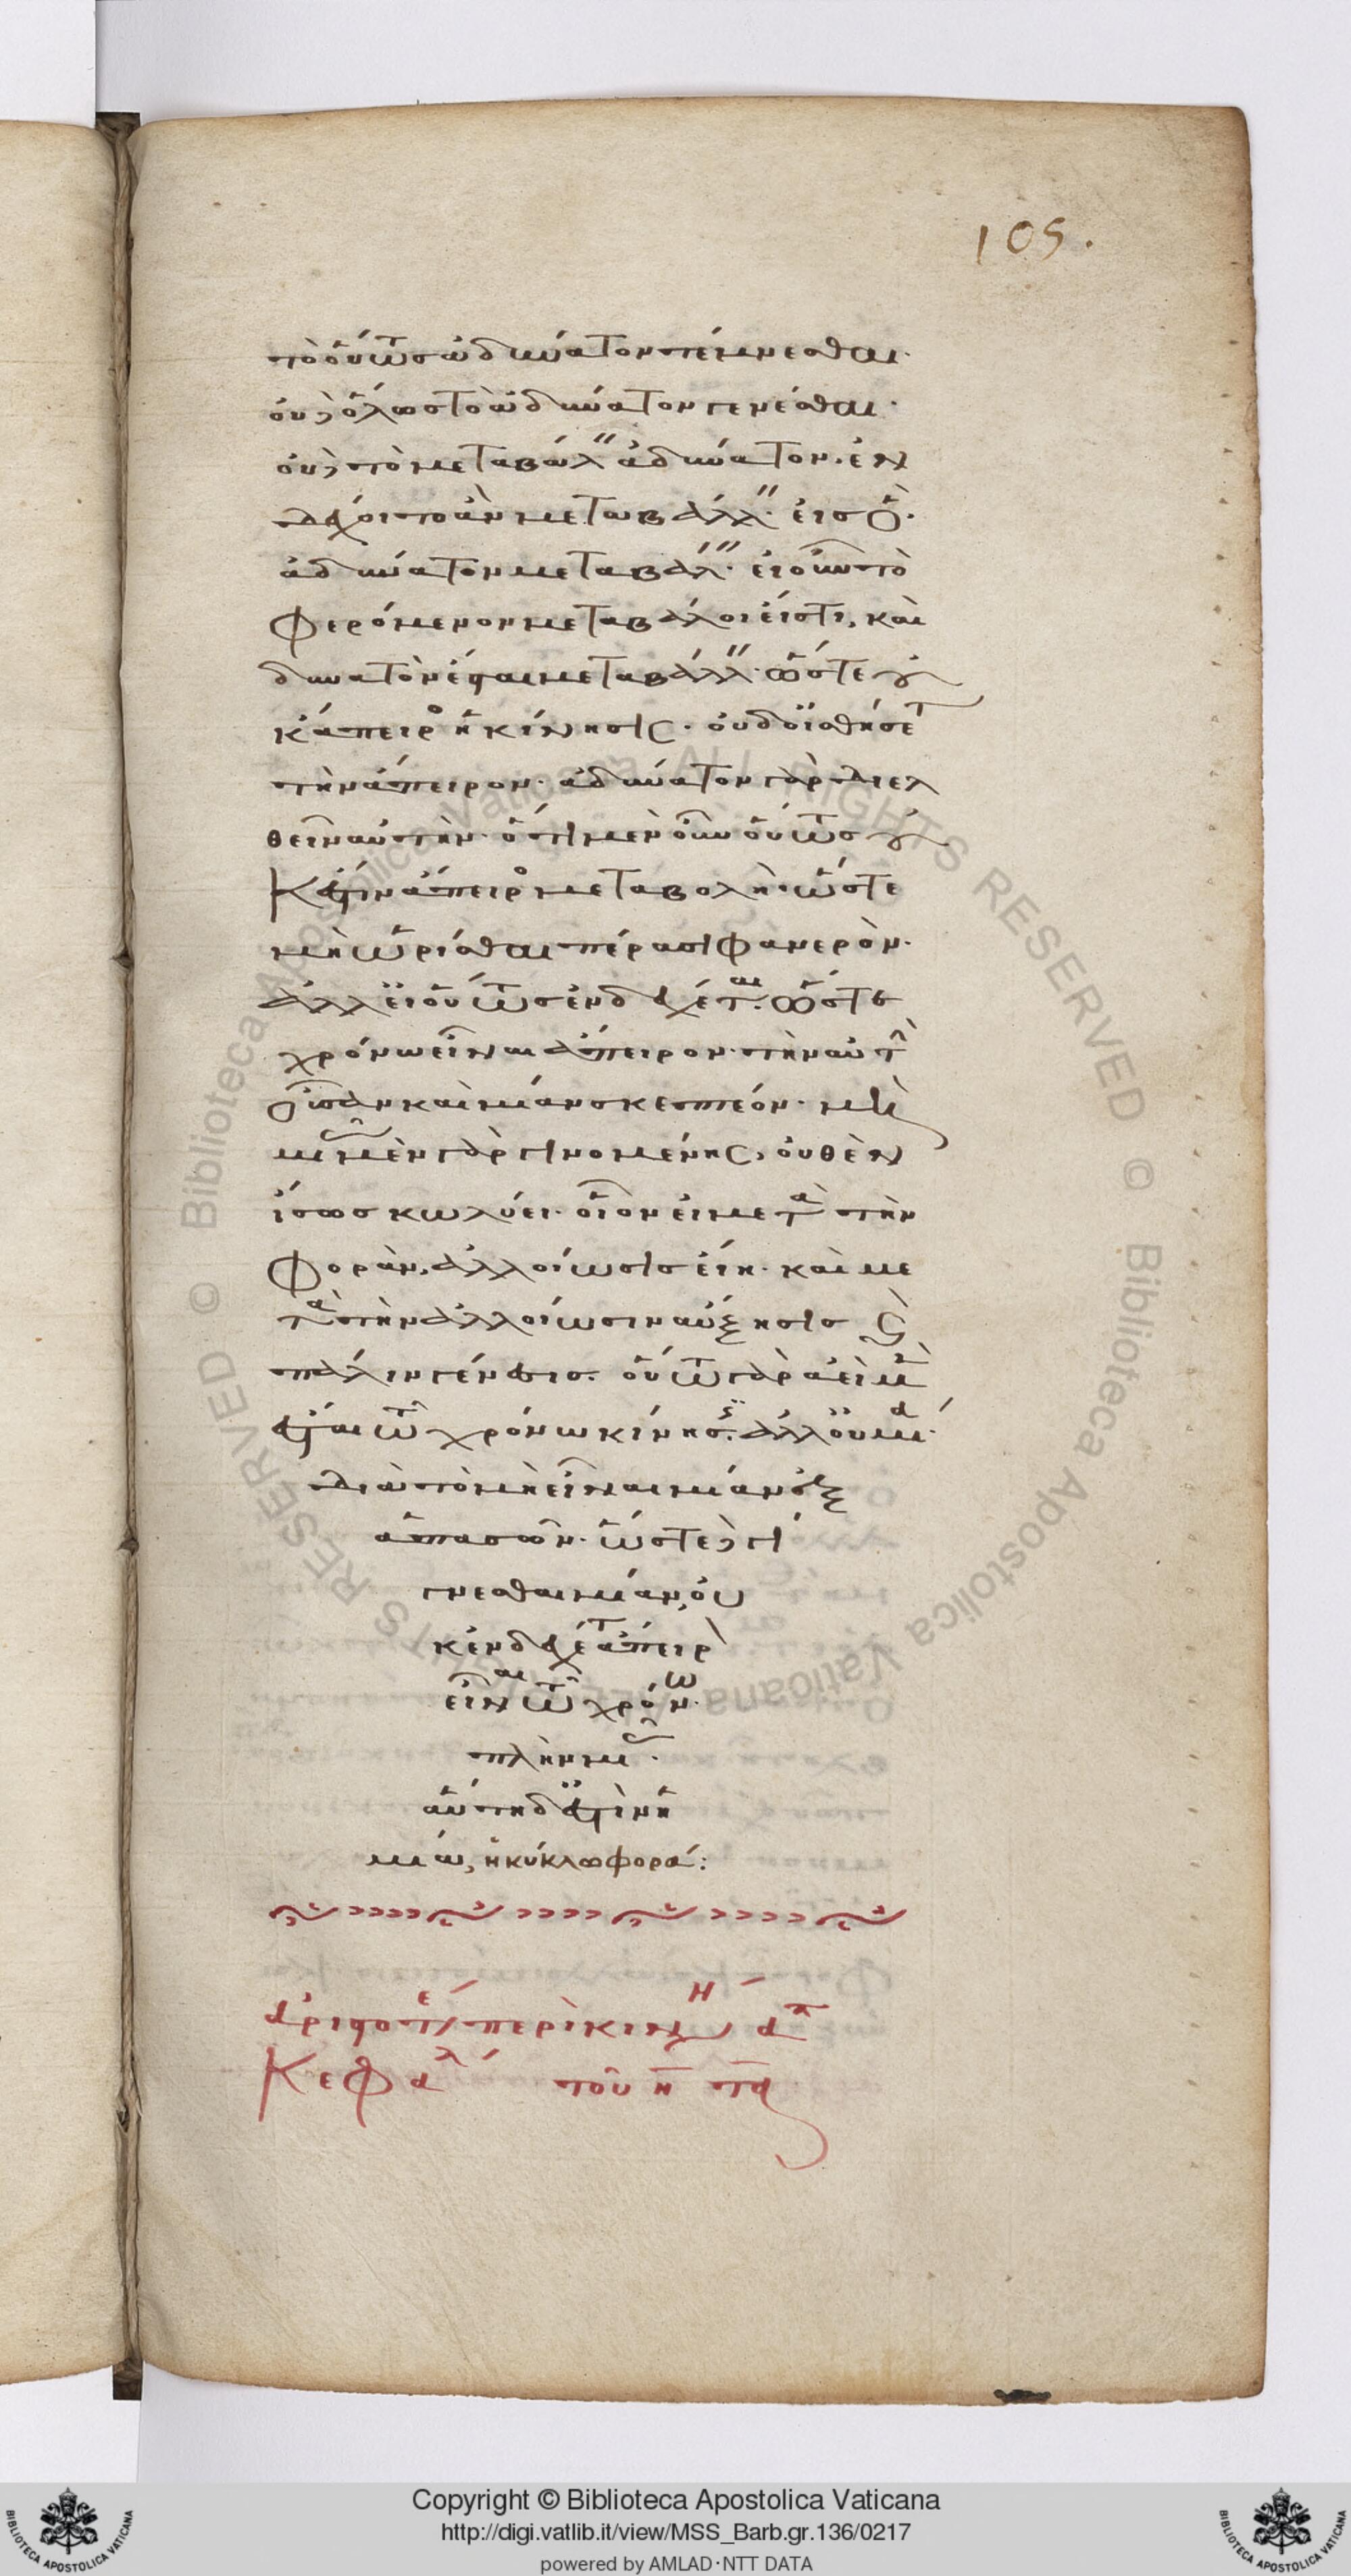 105.
τὸ οὕτως ἀδύνατον τέμνεσθαι·
οὐδὲ ὅλως τὸ ἀδύνατον γενέσθαι·
οὐδὲ τὸ μεταβάλλειν ἀδύνατον· ἐν
δέχοιτο ἂν μεταβάλλειν εἰς ὃ
ἀδύνατον μεταβάλλειν· εἰ οὖν τὸ
φερόμενον μεταβάλοι εἴς τι, καὶ
δυνατὸν ἔσται μεταβάλλειν· ὥστε οὐ
κ ἄπειρος ἡ κίνησις· οὐδ' οἰσθήσεται
τὴν ἄπειρον· ἀδύνατον γὰρ διελ
θεῖν αὐτήν· ὅτι μὲν οὖν οὕτως οὐ
κ ἔστιν ἄπειρος μεταβολὴ· ὥστε
μὴ ὡρίσθαι πέρασι φανερόν·
ἀλλ' εἰ οὕτως ἐνδέχεται· ὥστε
χρόνω εἶναι ἄπειρον· τὴν αὐτὴν
οὖσαν καὶ μίαν σκεπτέον· μὴ
μιᾶς μὲν γὰρ γινομένης, οὐθὲν
ἴσως κωλύει· οἷον εἰ μετὰ τὴν
φορὰν, ἀλλοίωσις εἴη· καὶ με
τὰ τὴν ἀλλοίωσιν αὔξησις καὶ
πάλιν γένεσις· οὕτω γὰρ ἀεὶ μὲν
ἔσται τῶ χρόνω κίνησις· ἀλλ' οὐ μία·
διὰ τὸ μὴ εἶναι μίαν ἐξ
ἁπασῶν· ὥστε δὲ γί
γνεσθαι μίαν, οὐ
κ ἐνδέχεται ἄπειρον
εἶναι τῶ χρόνω·
πλὴν μιᾶς·
αὕτη δ' ἐστὶν ἡ
μία, ἡ κύκλω φορά:
ἀριστοτέλους περὶ κινήσεως
Κεφάλ τοῦ η
Copyright © Biblioteca Apostolica Vaticana
http://digi.vatlib.it/view/MSS_Barb.gr.136/0217
powered by AMLAD·NTT DATA